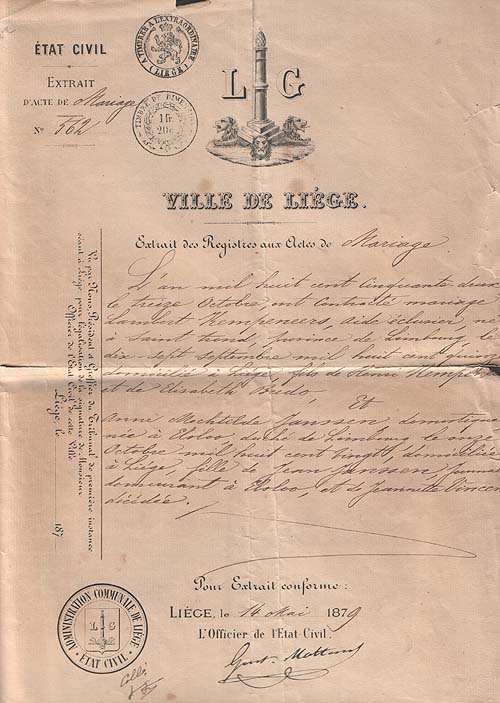 ÉTAT CIVIL
EXTRAIT
D'ACTE DE Mariage
N° 562
A TIMBRER A L'EXTRAORDINAIRE
(LIÉGE)
TIMBRE DE DIMENSION
1 fr
20 c
L G
VILLE DE LIÉGE.
Extrait des Registres aux Actes de Mariage
L'an mil huit cent cinquante deux
le treize Octobre, ont contracté mariage
Lambert Kempeneers, aide éclusier, né
à Saint Trond, province de Limbourg, le
dix-sept septembre mil huit cent
domicilié à Liége, fils de Henri
et de Elisabeth
Et
Anne Mechtilde Janssen, domestique
née à Elsloo, duché de Limbourg le onze
Octobre mil huit cent vingt, domiciliée
à Liége, fille de Jean Janssen,
demeurant à Elsloo, et de Jeannette Vincen
décédée.
Vu par Nous, Président & Greffier du Tribunal de première instance
séant à Liége, pour légalisation de la signature de Monsieur
Officier de l'État Civil de cette Ville
Liége, le 187
Pour Extrait conforme:
LIÉGE, le 14 Mai 1879
L'Officier de l'Etat-Civil.
ADMINISTRATION COMMUNALE DE LIÉGE
L G
ÉTAT CIVIL